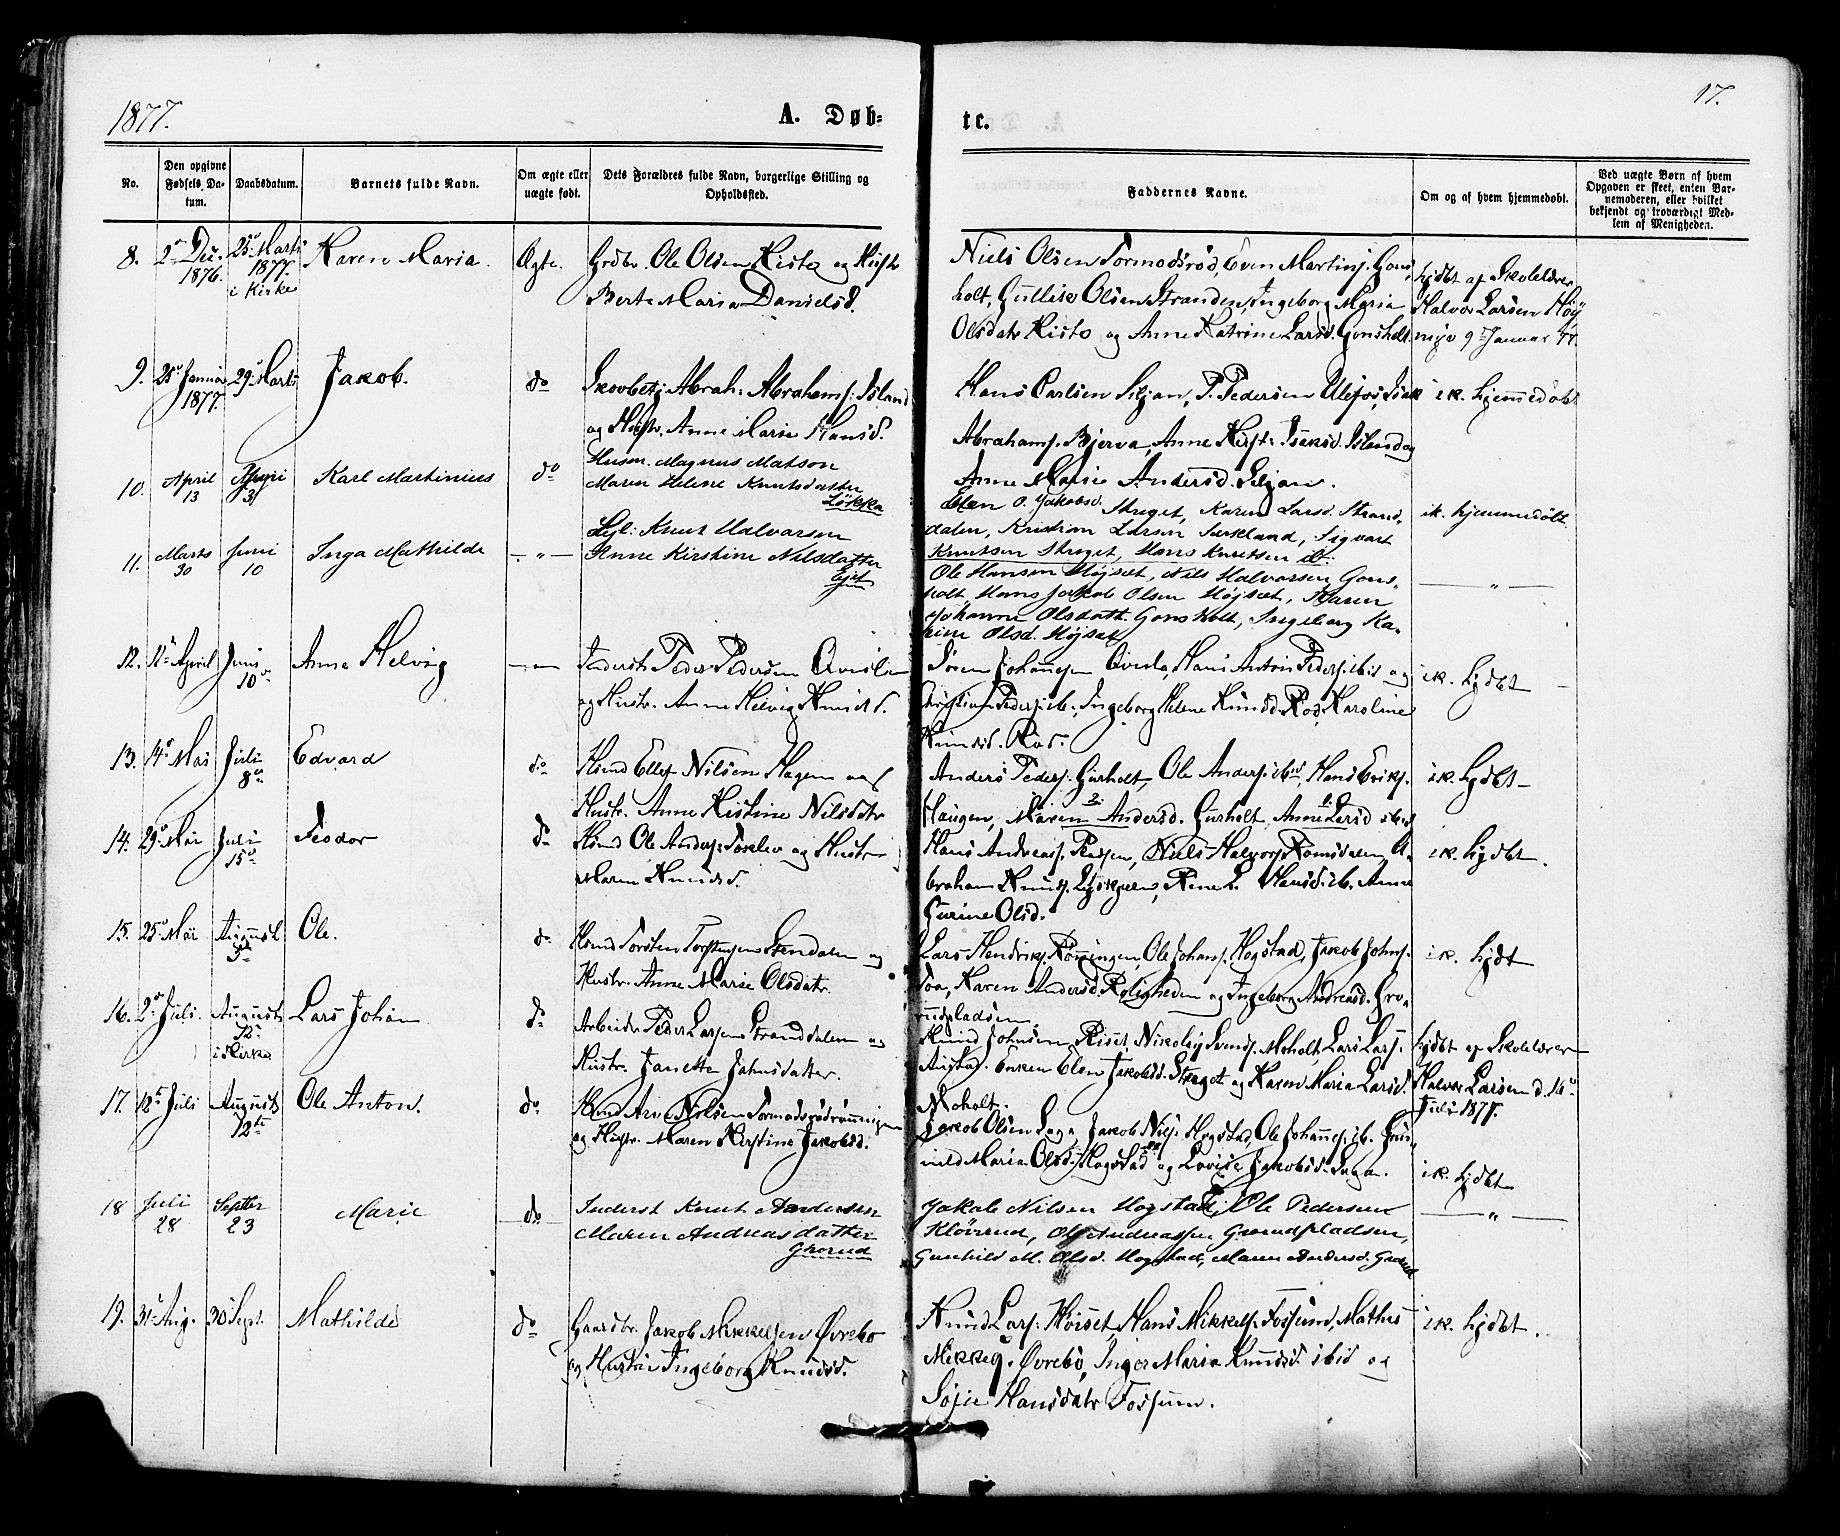 1877.
A. Døb-
te.
17.
No.
Den opgivne Fødsels Datum.
Daabsdatum.
Barnets fulde Navn.
Om ægte eller uægte født.
Dets Forældres fulde Navn, borgerlige Stilling og Opholdssted.
Faddernes Navne.
Om og af hvem hjemmedøbt.
Ved uægte Børn af hvem Opgaven er skeet, enten Barnemoderen, eller hvilket bekjendt og troværdigt Medlem af Menigheden.
8. 2 Dec. 1876. 25 Marts 1877. i Kirke
Karen Maria. Ægte.
Grdbr. Ole Olsen Kista og Hustr
Berte Maria Danielsd.
Niels Olsen Tormodsrød, Even Martins. Gons-
holt, Gullik Olsen Stranden, Ingeborg Maria
Olsdatr Kista og Anne Katrine Larsd. Gonsholt
hjdbt af Skolelærer
Halvor Larsen Høy
9 Januar 77.
9. 25 Januar 1877. 29 Marts
Jakob. do
Abrah. Abrahams. Island
og Hustr. Anne Marie Hansd.
Hans Carlsen Siljan, P. Pedersen Ulefos, Isak
Abrahams. Bjerva, Anne Kirst. Isaksd. Island og
Anne Marie Andersd. Siljan.
ik. hjemmedøbt
10. April 13 Juni 3
Karl Martinius do
Husm. Magnus Matson
Maren Helene Knutsdatter
Løkka
Elen O. Jakobsd. Skreget, Karen Larsd. Strand-
dalen, Kristian Larsen, Sigvart
Knutsen Skreget, Hans Knutsen ib.
ik. hjemmedøbt
11. Marts 30 Juni 10
Inga Mathilde — " —
Knut Halvorsen
Anne Kirstine Nilsdatter
Ole Hansen Højset, Nils Halvorsen Gons-
holt, Hans Jakob Olsen Højset, Karen
Johanne Olsdatt. Gonsholt, Ingeborg Ka-
rine Olsd. Højset
— " —
12. 11 April Juni 10
Anne Helvig — " —
Inderst Peder Pedersen
og Hustr. Anne Helvig Knudsd.
Søren Johannesen, Hans Anton Peders. ibid og
Christian Peders. ib., Ingeborg Helene Knudsd. Rød, Karoline
Knudsd. Rød.
ik. hjdbt —
13. 14 Mai Juli 8
Edvard do
Hsmd Ellef Nilsen Hagen og
Hustr. Anne Kistine Nilsdtr
Anders Peders. Gurholt, Ole Anders. ibid, Hans Eriks.
Haugen, Maren Andersd. Gurholt, Anne Larsd ibid
ik. hjdbt —
14. 29 Mai Juli 15
Teodor do
Hsmd Ole Anders. Torslev og Hustr
Maren Knudsd.
Hans Andreass., Niels Halvors. Romsdalen, A-
braham Knuts., Rine L. Hansd. ib. Anne
Gurine Olsd.
ik. hjdbt.
15. 25 Mai August 5
Ole. do
Hsmd Torsten Torstensen Stendalen og
Hustr. Anne Marie Olsdatr.
Lars Henriks. Rønningen, Ole Johans. Hogstad, Jakob Johns.
Toa, Karen Andersd. Roligheden og Ingeborg Andreasd. Gro-
rudpladsen.
ik. hjdt
16. 2 Juli. August 12 i Kirke
Lars Johan do
Arbeidr Peder Larsen Stranddalen og
Hustr. Janette Jahnsdatter.
Knud Johnsen Riset, Nikolaj Svends. Moholt, Lars Lars.
Aristad. Enken Elen Jakobsd. Skreget og Karen Maria Larsd.
Moholt.
hjdbt af Skolelærer
Halvor Larsen d. 16
Juli 1877.
17. 18 Juli August 12te
Ole Anton. do
Hsmd Nilsen Tormodsrødrønningen
og Hustr. Maren Kirstine Jakobsd.
Jakob Olsen Saga, Jakob Nils. Hogstad, Ole Johanness. ib. Gun-
nild Maria Olsd. Hogstad og Lovise Jakobsd. Saga.
ik. hjdbt
18 Juli 28 Septbr 23
Marie — do —
Inderst Knut Andersen
Maren Andreasdatter
Grorud
Jakob Nilsen Hogstad, Ole Pedersen
Kløvrud, Ole Andreassen Grorudpladsen,
Gunhild M. Olsd. Hogstad, Maren Andersd. Grorud
— " —
19. 31 Aug. 30 Sept.
Mathilde do
Gaardbr. Jakob Mikkelsen Øvrebø
og Hustru Ingeborg Knudsd.
Knud Lars. Høiset, Hans Mikkels. Fossum, Mathis
Mikkels. Øvrebø, Inger Maria Knudsd. ibid og
Hansdatr Fossum.
ik. hjdbt.